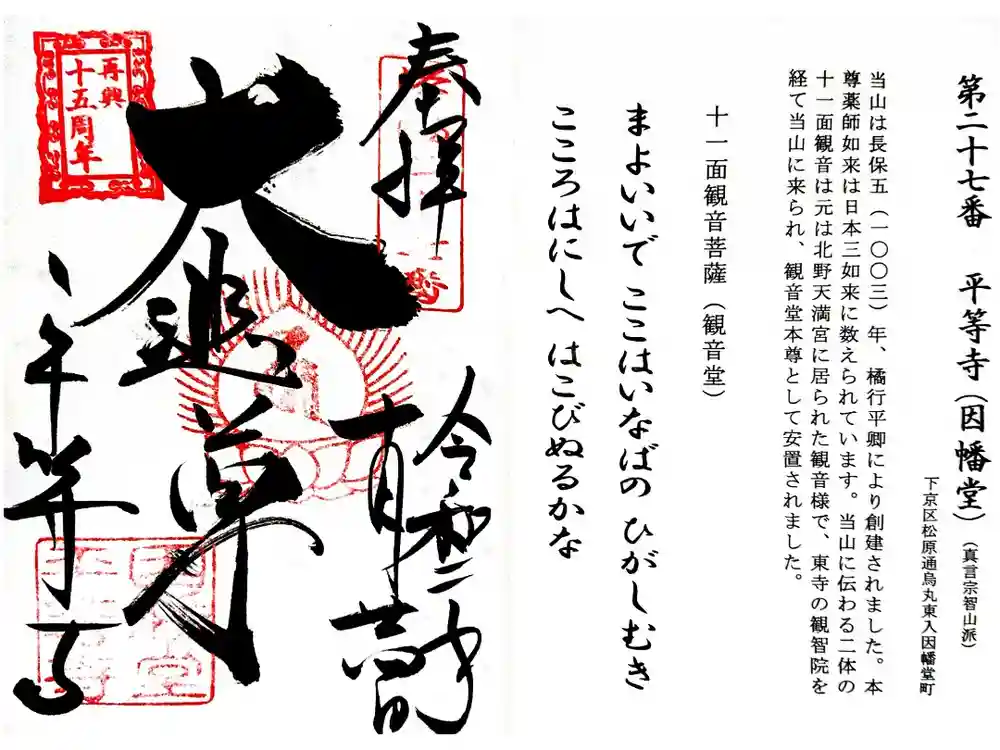 第二十七番 平等寺（因幡堂）（真言宗智山派）
下京区松原通烏丸東入因幡堂町
当山は長保五（一〇〇三）年、橘行平卿により創建されました。本
尊薬師如来は日本三如来に数えられています。当山に伝わる二体の
十一面観音は元は北野天満宮に居られた観音様で、東寺の観智院を
経て当山に来られ、観音堂本尊として安置されました。
十一面観音菩薩（観音堂）
まよいいで ここはいなばの ひがしむき
こころはにしへ はこびぬるかな
奉拝
令和二年
十月
大悲尊
平等寺
再興
十五周年